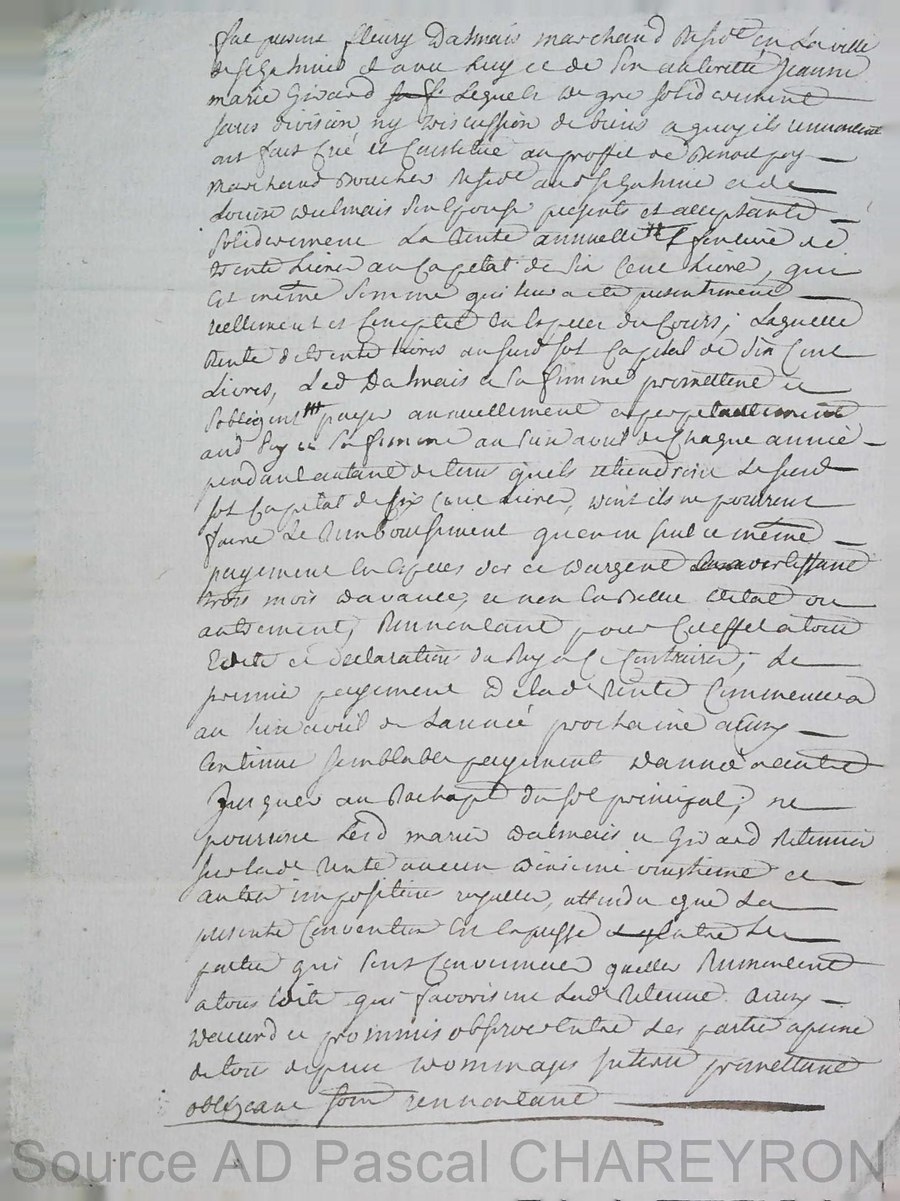 fut present fleury Dalmais marchand Resid.t en La ville
de st chamond et avec luy et de Son authorité Jeanne
marie Girard Lequels de gré solidairement
sans division ny discussion de biens a quoy ils renoncent
ont fait Créé et Constitué au proffit de Benoit poy
marchand Boucher Resid.t aud st chamond et de
Louise dalmais Son Epouse presents et acceptants
solidairement La Rente annuelle et fonciere de
trente Livres au Capital de Six Cent Livres, qui
est même Somme qui leur a été presentement
reellement et Comptée En Especes du Cours; Laquelle
Rente de trente livres au susd sort Capital de Six Cent
Livres, Led Dalmais et sa femme promettent et
sobligent payer annuellement et perpetuellement
aud poy et Sa femme au Six avril de Chaque année
pendant autant de tems quels retiendront Le susd
sort Capital de six Cent Livres, dont ils ne pourront
faire Le Remboursement quen un seul et même
payement En Especes dor et dargent avertissant
trois mois davance, et non En Billet detat ou
autrement, Renoncant pour Cet effet a tous
Edits et declarations du Roy a Ce Contraires; Le
premier payement de lade Rente Commencera
au Six avril de Lannée prochaine ainsy
Continue semblable payement dannée a autre
Jusques au Rachapt du sort principal; ne
pourront Lesd mariés dalmais et Girard Retenir
sur lade Rente aucun dixieme vingtieme et
autres impositions royalles, attendu que La
presente Convention Est Expresse Entre Les
parties qui sont Convenues quelles Renoncent
a tous Edits qui favorisent Lad Retenue ainsy
daccord et prommis observer Entre Les parties a peine
de tous depens dommages Interets promettant
obligeant soum renoncant
Source AD Pascal CHAREYRON